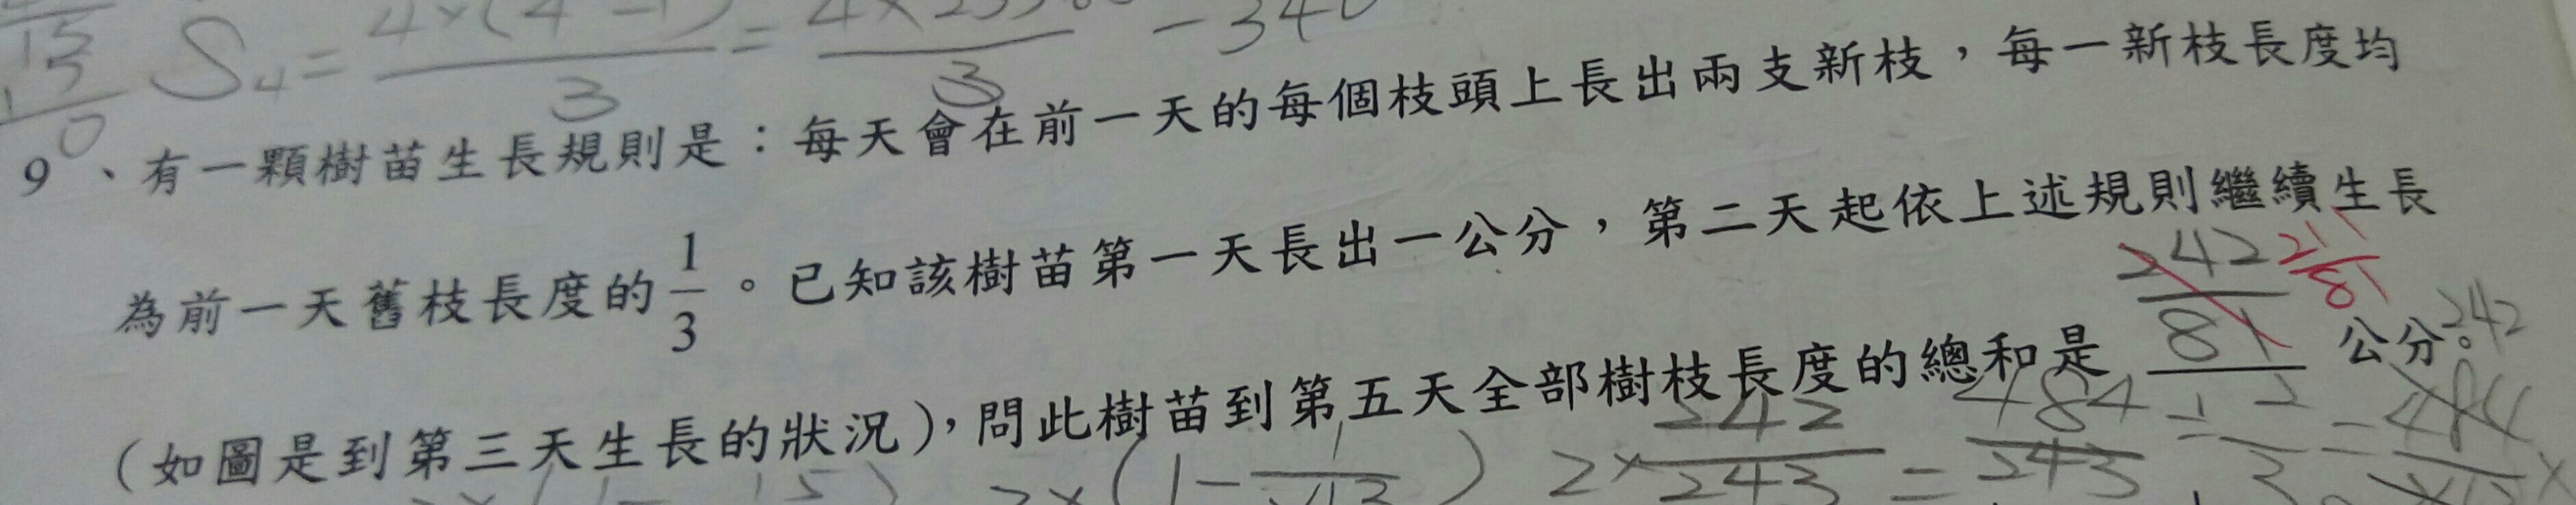 S₄ = 4×(4 - 1) / 3 = 4× / 3 - 340
9、有一顆樹苗生長規則是：每天會在前一天的每個枝頭上長出兩支新枝，每一新枝長度均
為前一天舊枝長度的 1/3 。已知該樹苗第一天長出一公分，第二天起依上述規則繼續生長
242/81 211/81
（如圖是到第三天生長的狀況），問此樹苗到第五天全部樹枝長度的總和是 公分。
242
2×(1- 2× 242/243 = 484/243